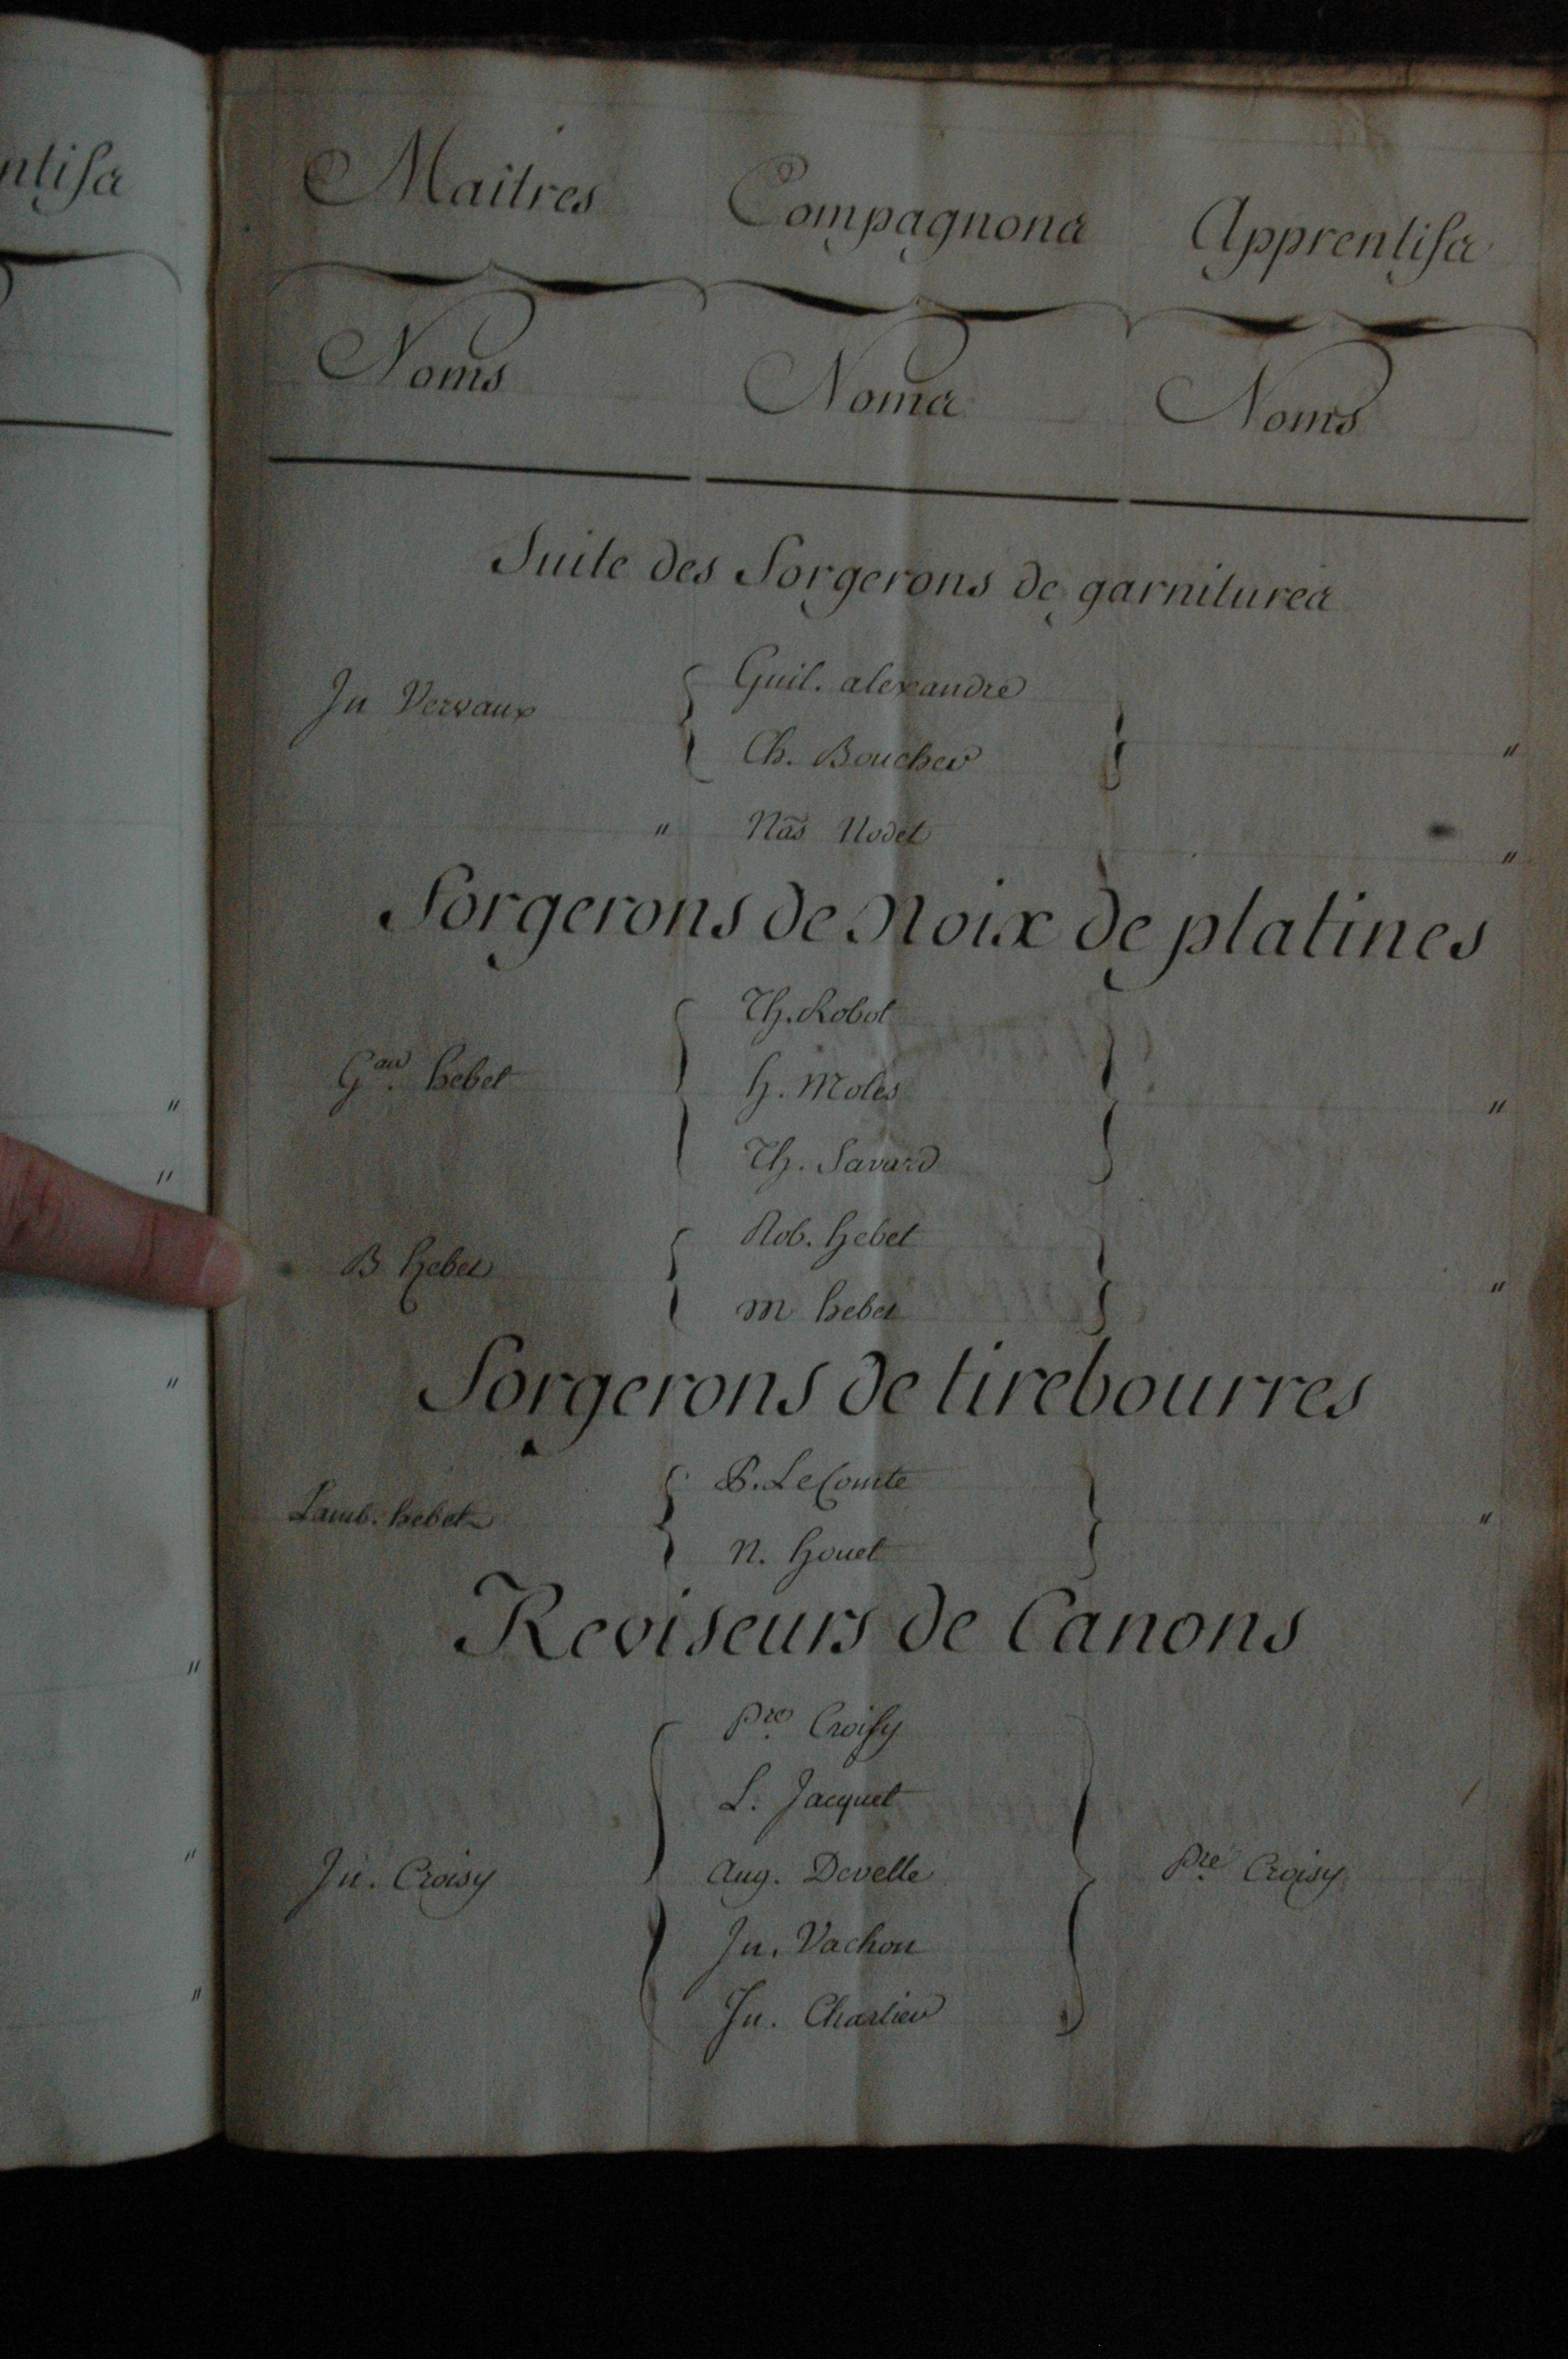 ntiſs
Maitres Compagnons Apprentiſs
Noms Noms Noms
Suite des Forgerons de garnitures
Jn Vervaux
Guil. alexandre
Ch. Boucher
"
" Nas Nodet "
Forgerons de Noix de platines
Th. Robot
Gau. hebet
h. Moles "
Th. Savard
Rob. hebet
B hebet "
m hebet
Forgerons de tirebourres
P. LeComte
Lamb. hebet "
N. houet
Reviseurs de Canons
Pre. Croiſy
L. Jacquet
Jn. Croisy Aug. Develle Pre. Croisy
Jn. Vachon
Jn. Charlier